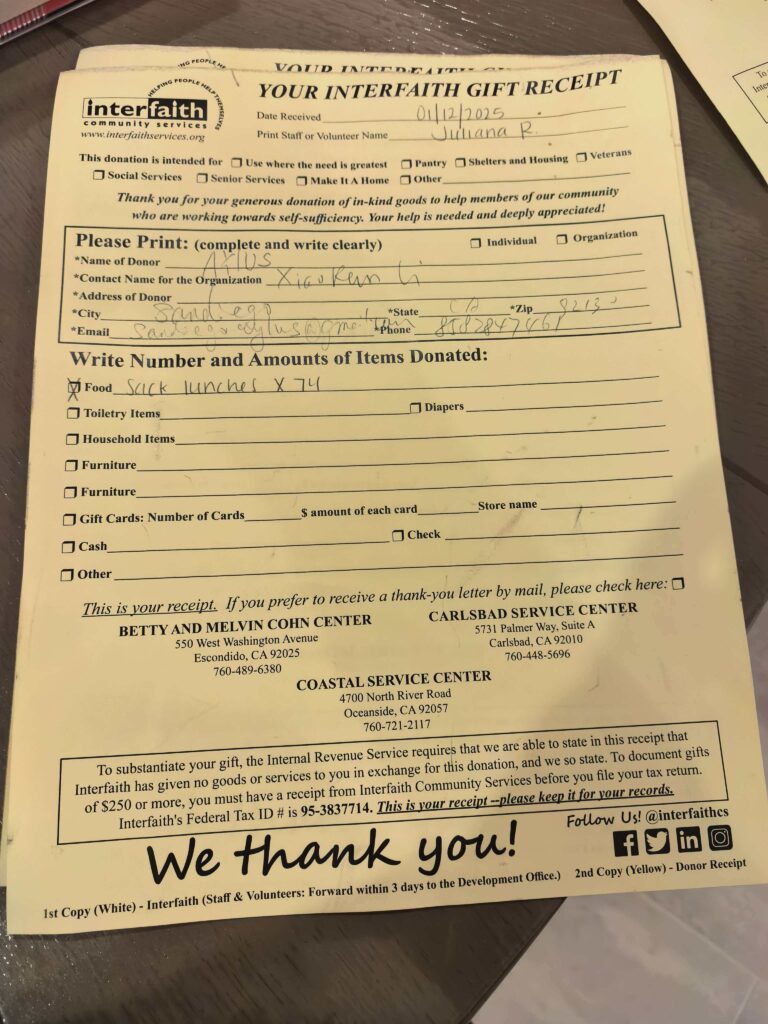 YOUR INTERFAITH
HELPING PEOPLE HELP THEMSELVES
interfaith
community services
www.interfaithservices.org
YOUR INTERFAITH GIFT RECEIPT
Date Received 01/12/2025
Print Staff or Volunteer Name Juliana R.
This donation is intended for ☐ Use where the need is greatest ☐ Pantry ☐ Shelters and Housing ☐ Veterans
☐ Social Services ☐ Senior Services ☐ Make It A Home ☐ Other
Thank you for your generous donation of in-kind goods to help members of our community
who are working towards self-sufficiency. Your help is needed and deeply appreciated!
Please Print: (complete and write clearly) ☐ Individual ☐ Organization
*Name of Donor
*Contact Name for the Organization Li
*Address of Donor
*City San diego *State CA *Zip
*Email *Phone
Write Number and Amounts of Items Donated:
☒ Food Sack lunches X 74
☐ Toiletry Items ☐ Diapers
☐ Household Items
☐ Furniture
☐ Furniture
☐ Gift Cards: Number of Cards $ amount of each card Store name
☐ Cash ☐ Check
☐ Other
This is your receipt. If you prefer to receive a thank-you letter by mail, please check here: ☐
BETTY AND MELVIN COHN CENTER
550 West Washington Avenue
Escondido, CA 92025
760-489-6380
CARLSBAD SERVICE CENTER
5731 Palmer Way, Suite A
Carlsbad, CA 92010
760-448-5696
COASTAL SERVICE CENTER
4700 North River Road
Oceanside, CA 92057
760-721-2117
To substantiate your gift, the Internal Revenue Service requires that we are able to state in this receipt that
Interfaith has given no goods or services to you in exchange for this donation, and we so state. To document gifts
of $250 or more, you must have a receipt from Interfaith Community Services before you file your tax return.
Interfaith's Federal Tax ID # is 95-3837714. This is your receipt --please keep it for your records.
We thank you!
Follow Us! @interfaithcs
1st Copy (White) - Interfaith (Staff & Volunteers: Forward within 3 days to the Development Office.) 2nd Copy (Yellow) - Donor Receipt